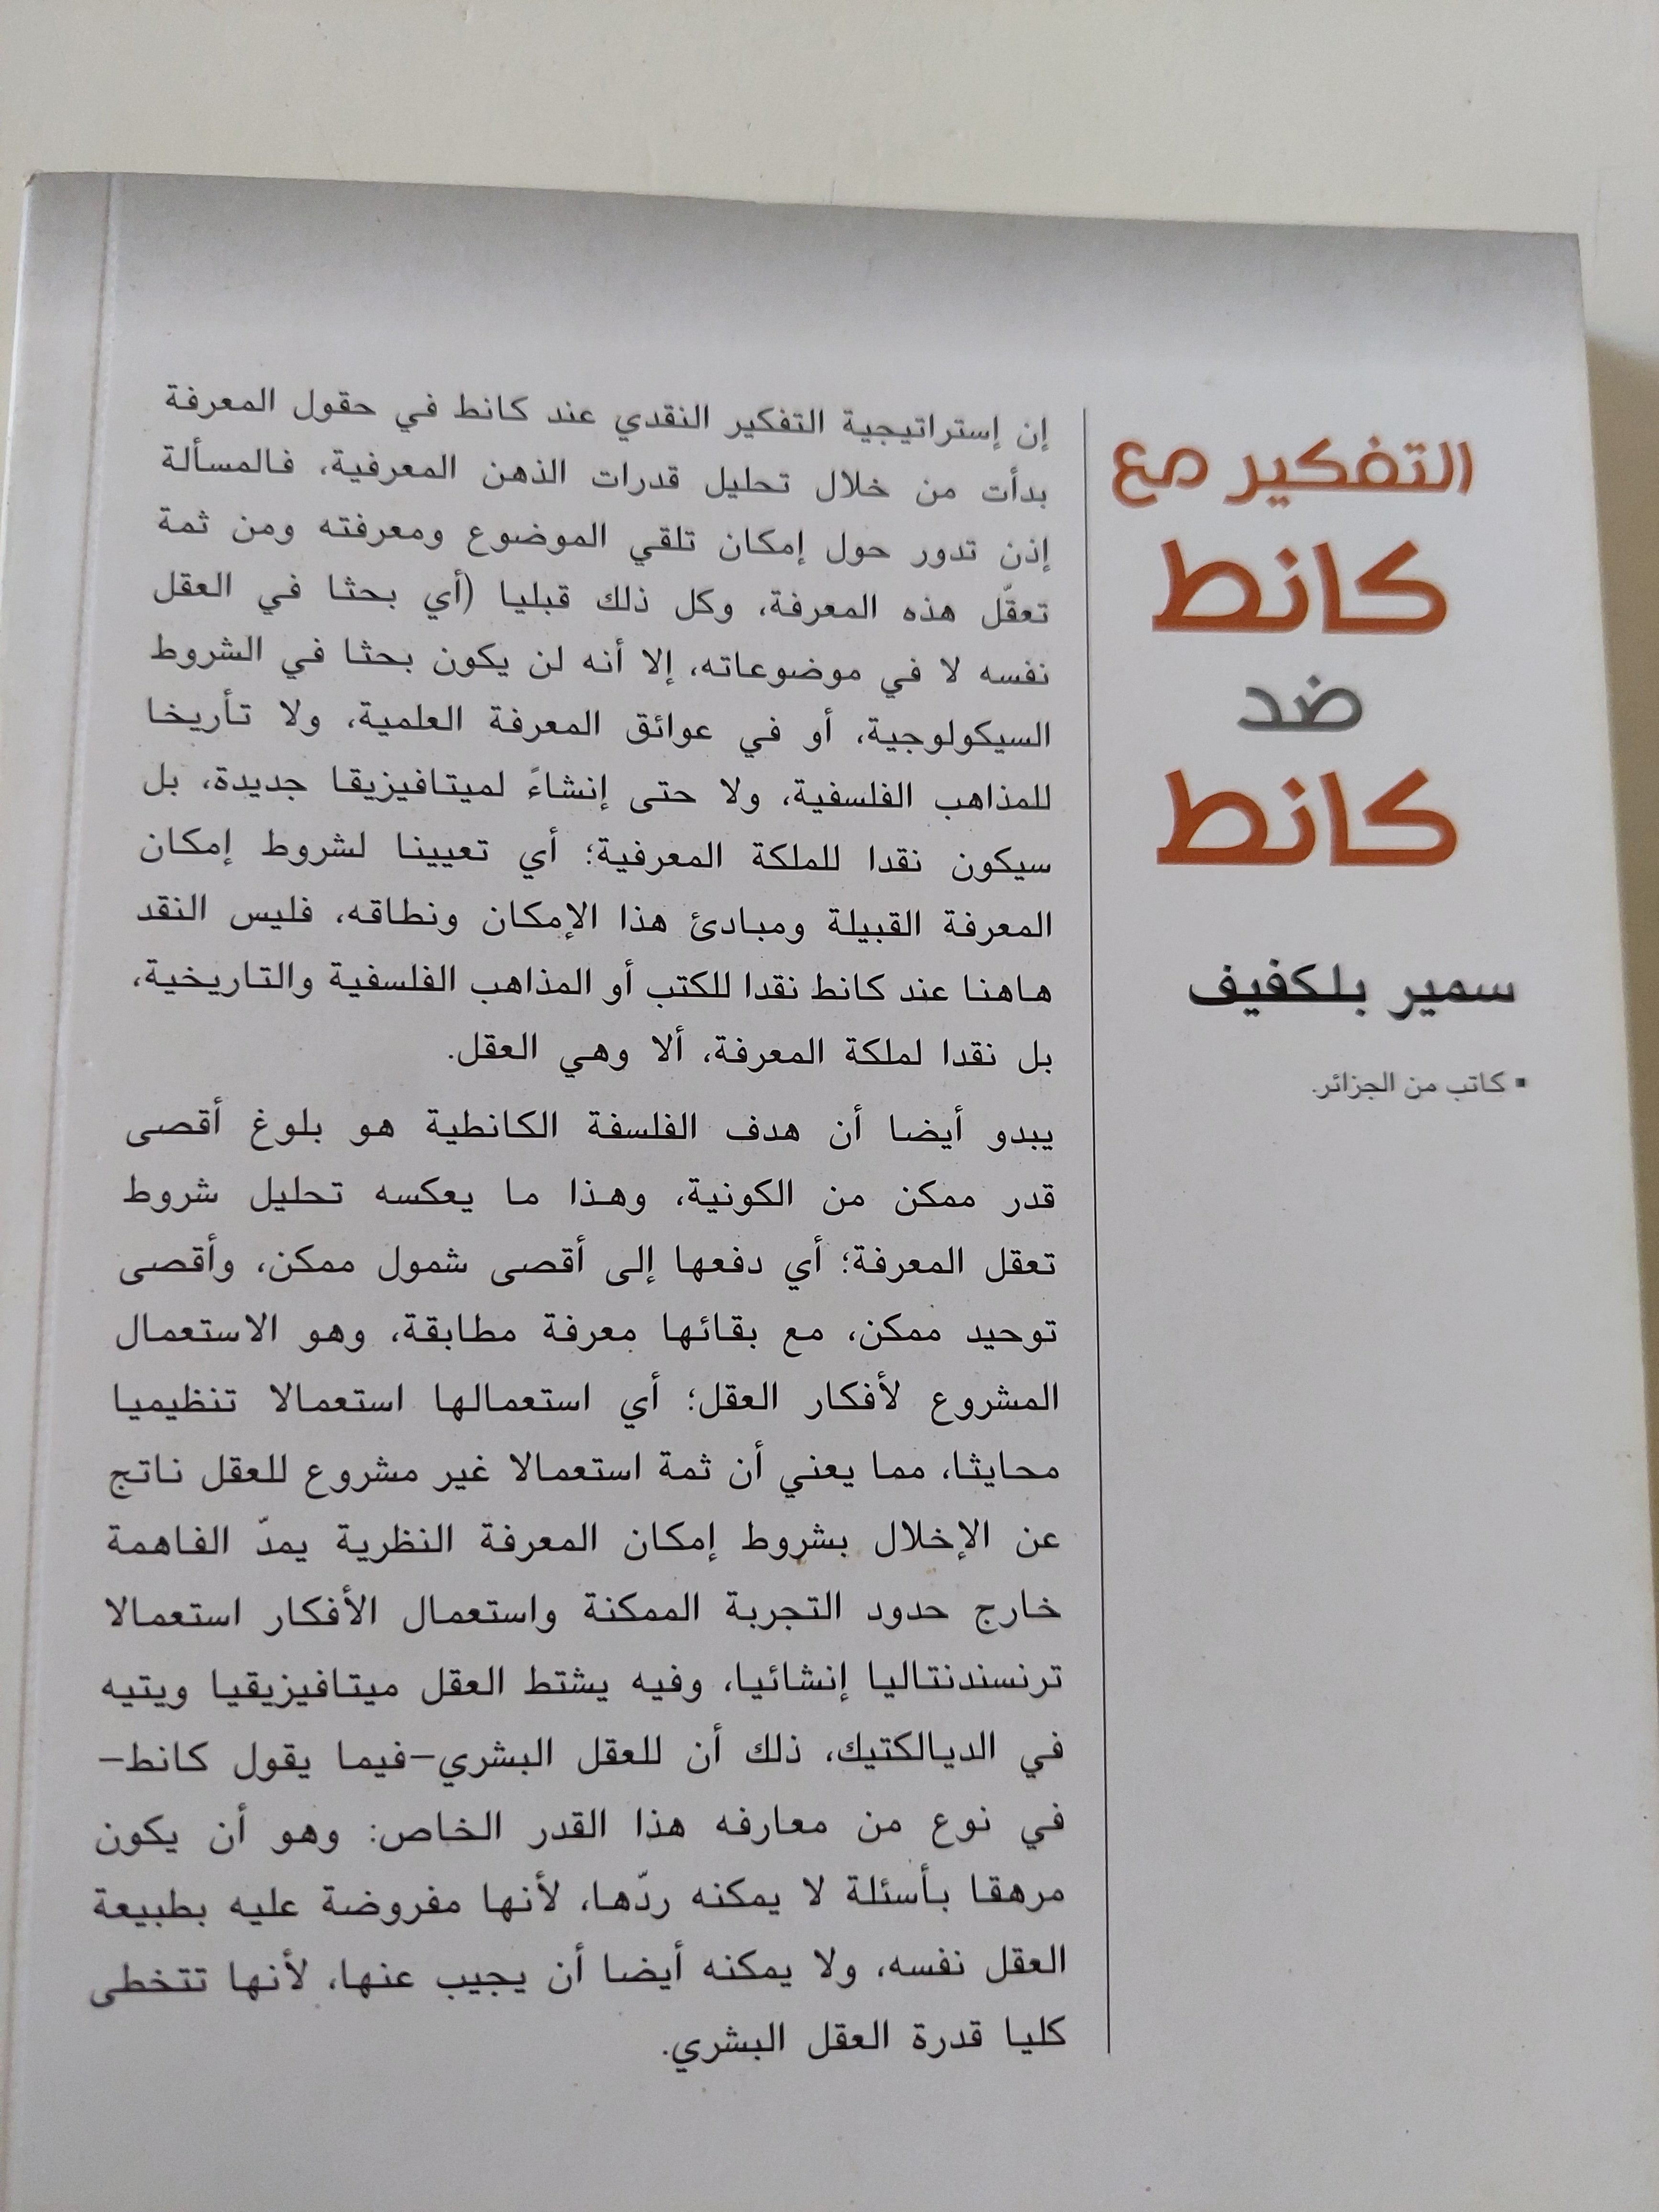 التفكير مع
كانط
ضد
كانط
سمير بلكفيف
▪ كاتب من الجزائر.
إن إستراتيجية التفكير النقدي عند كانط في حقول المعرفة
بدأت من خلال تحليل قدرات الذهن المعرفية، فالمسألة
إذن تدور حول إمكان تلقي الموضوع ومعرفته ومن ثمة
تعقّل هذه المعرفة، وكل ذلك قبليا (أي بحثا في العقل
نفسه لا في موضوعاته، إلا أنه لن يكون بحثا في الشروط
السيكولوجية، أو في عوائق المعرفة العلمية، ولا تأريخا
للمذاهب الفلسفية، ولا حتى إنشاءً لميتافيزيقا جديدة، بل
سيكون نقدا للملكة المعرفية؛ أي تعيينا لشروط إمكان
المعرفة القبيلة ومبادئ هذا الإمكان ونطاقه، فليس النقد
هاهنا عند كانط نقدا للكتب أو المذاهب الفلسفية والتاريخية،
بل نقدا لملكة المعرفة، ألا وهي العقل.
يبدو أيضا أن هدف الفلسفة الكانطية هو بلوغ أقصى
قدر ممكن من الكونية، وهذا ما يعكسه تحليل شروط
تعقل المعرفة؛ أي دفعها إلى أقصى شمول ممكن، وأقصى
توحيد ممكن، مع بقائها معرفة مطابقة، وهو الاستعمال
المشروع لأفكار العقل؛ أي استعمالها استعمالا تنظيميا
محايثا، مما يعني أن ثمة استعمالا غير مشروع للعقل ناتج
عن الإخلال بشروط إمكان المعرفة النظرية يمدّ الفاهمة
خارج حدود التجربة الممكنة واستعمال الأفكار استعمالا
ترنسندنتاليا إنشائيا، وفيه يشتط العقل ميتافيزيقيا ويتيه
في الديالكتيك، ذلك أن للعقل البشري–فيما يقول كانط–
في نوع من معارفه هذا القدر الخاص: وهو أن يكون
مرهقا بأسئلة لا يمكنه ردّها، لأنها مفروضة عليه بطبيعة
العقل نفسه، ولا يمكنه أيضا أن يجيب عنها، لأنها تتخطى
كليا قدرة العقل البشري.